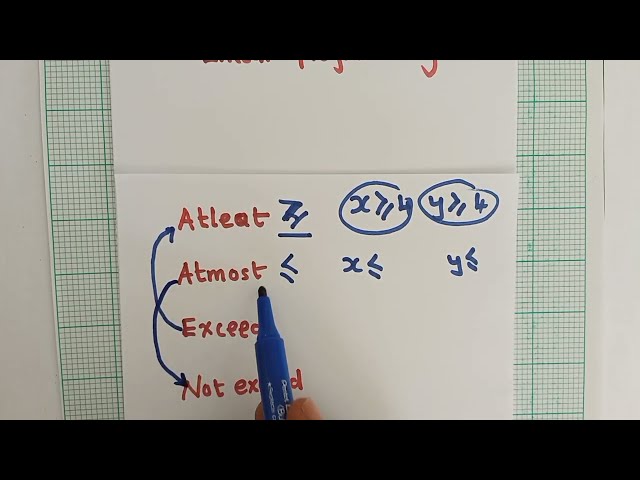 Atleat ≥ x≥4 y≥4
Atmost ≤ x≤ y≤
Exceed
Not exceed